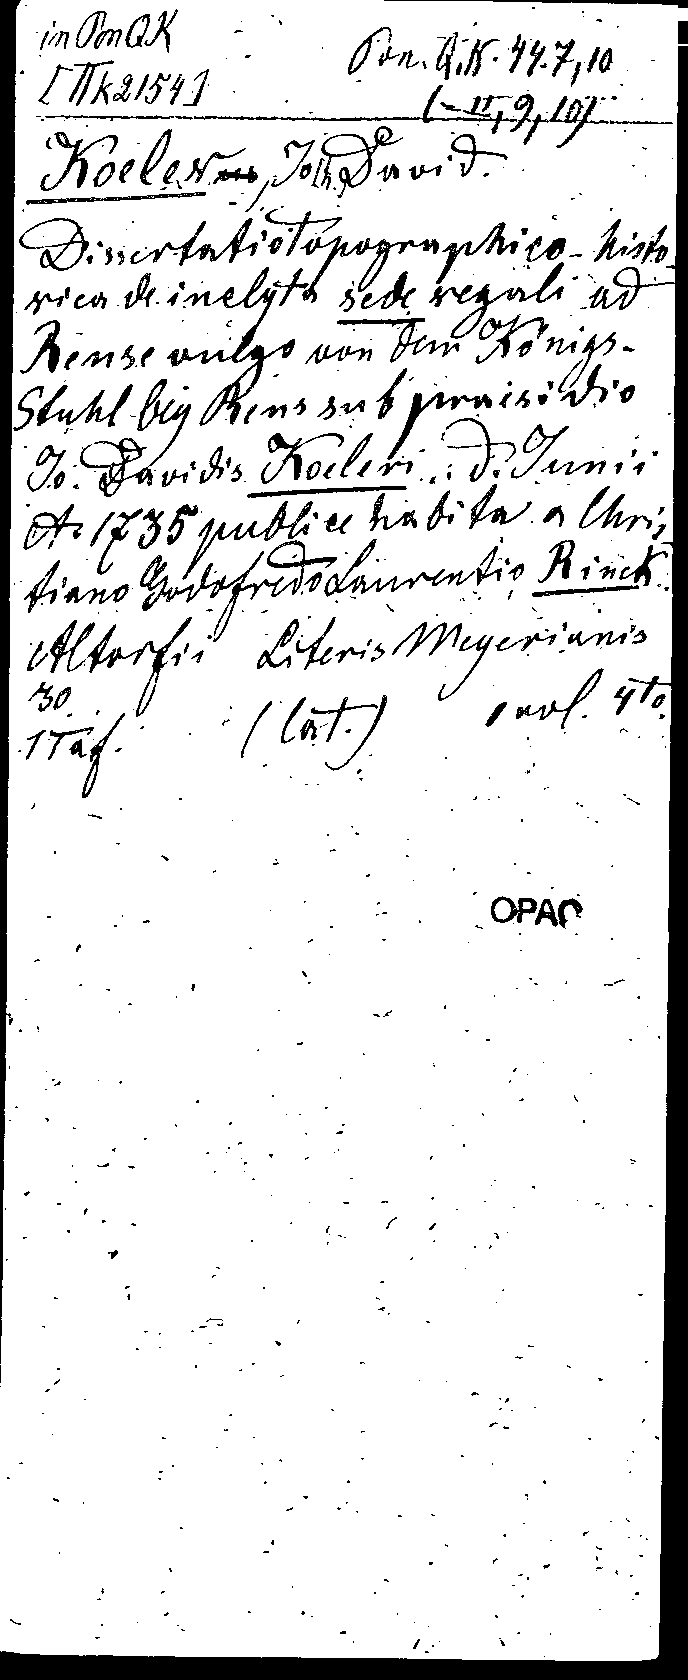 in Pon QK
Pon. QK. 44.7,10
[IIk2154]
(-II,9,10)
Koeler, Joh. David.
Dissertatio Topographico-histo-
rica de inclyta sede regali ad
Rense vulgo von dem Königs-
Stuhl bey Rens sub praesidio
Jo. Davidis Koeleri .. d. Junii
A. 1735 publice habita a Chris
tiano Godofredo Laurentio Rinck.
Altorfii Literis Meyerianis
30
1 Taf. (lat.) 1 vol. 4to.
OPAC